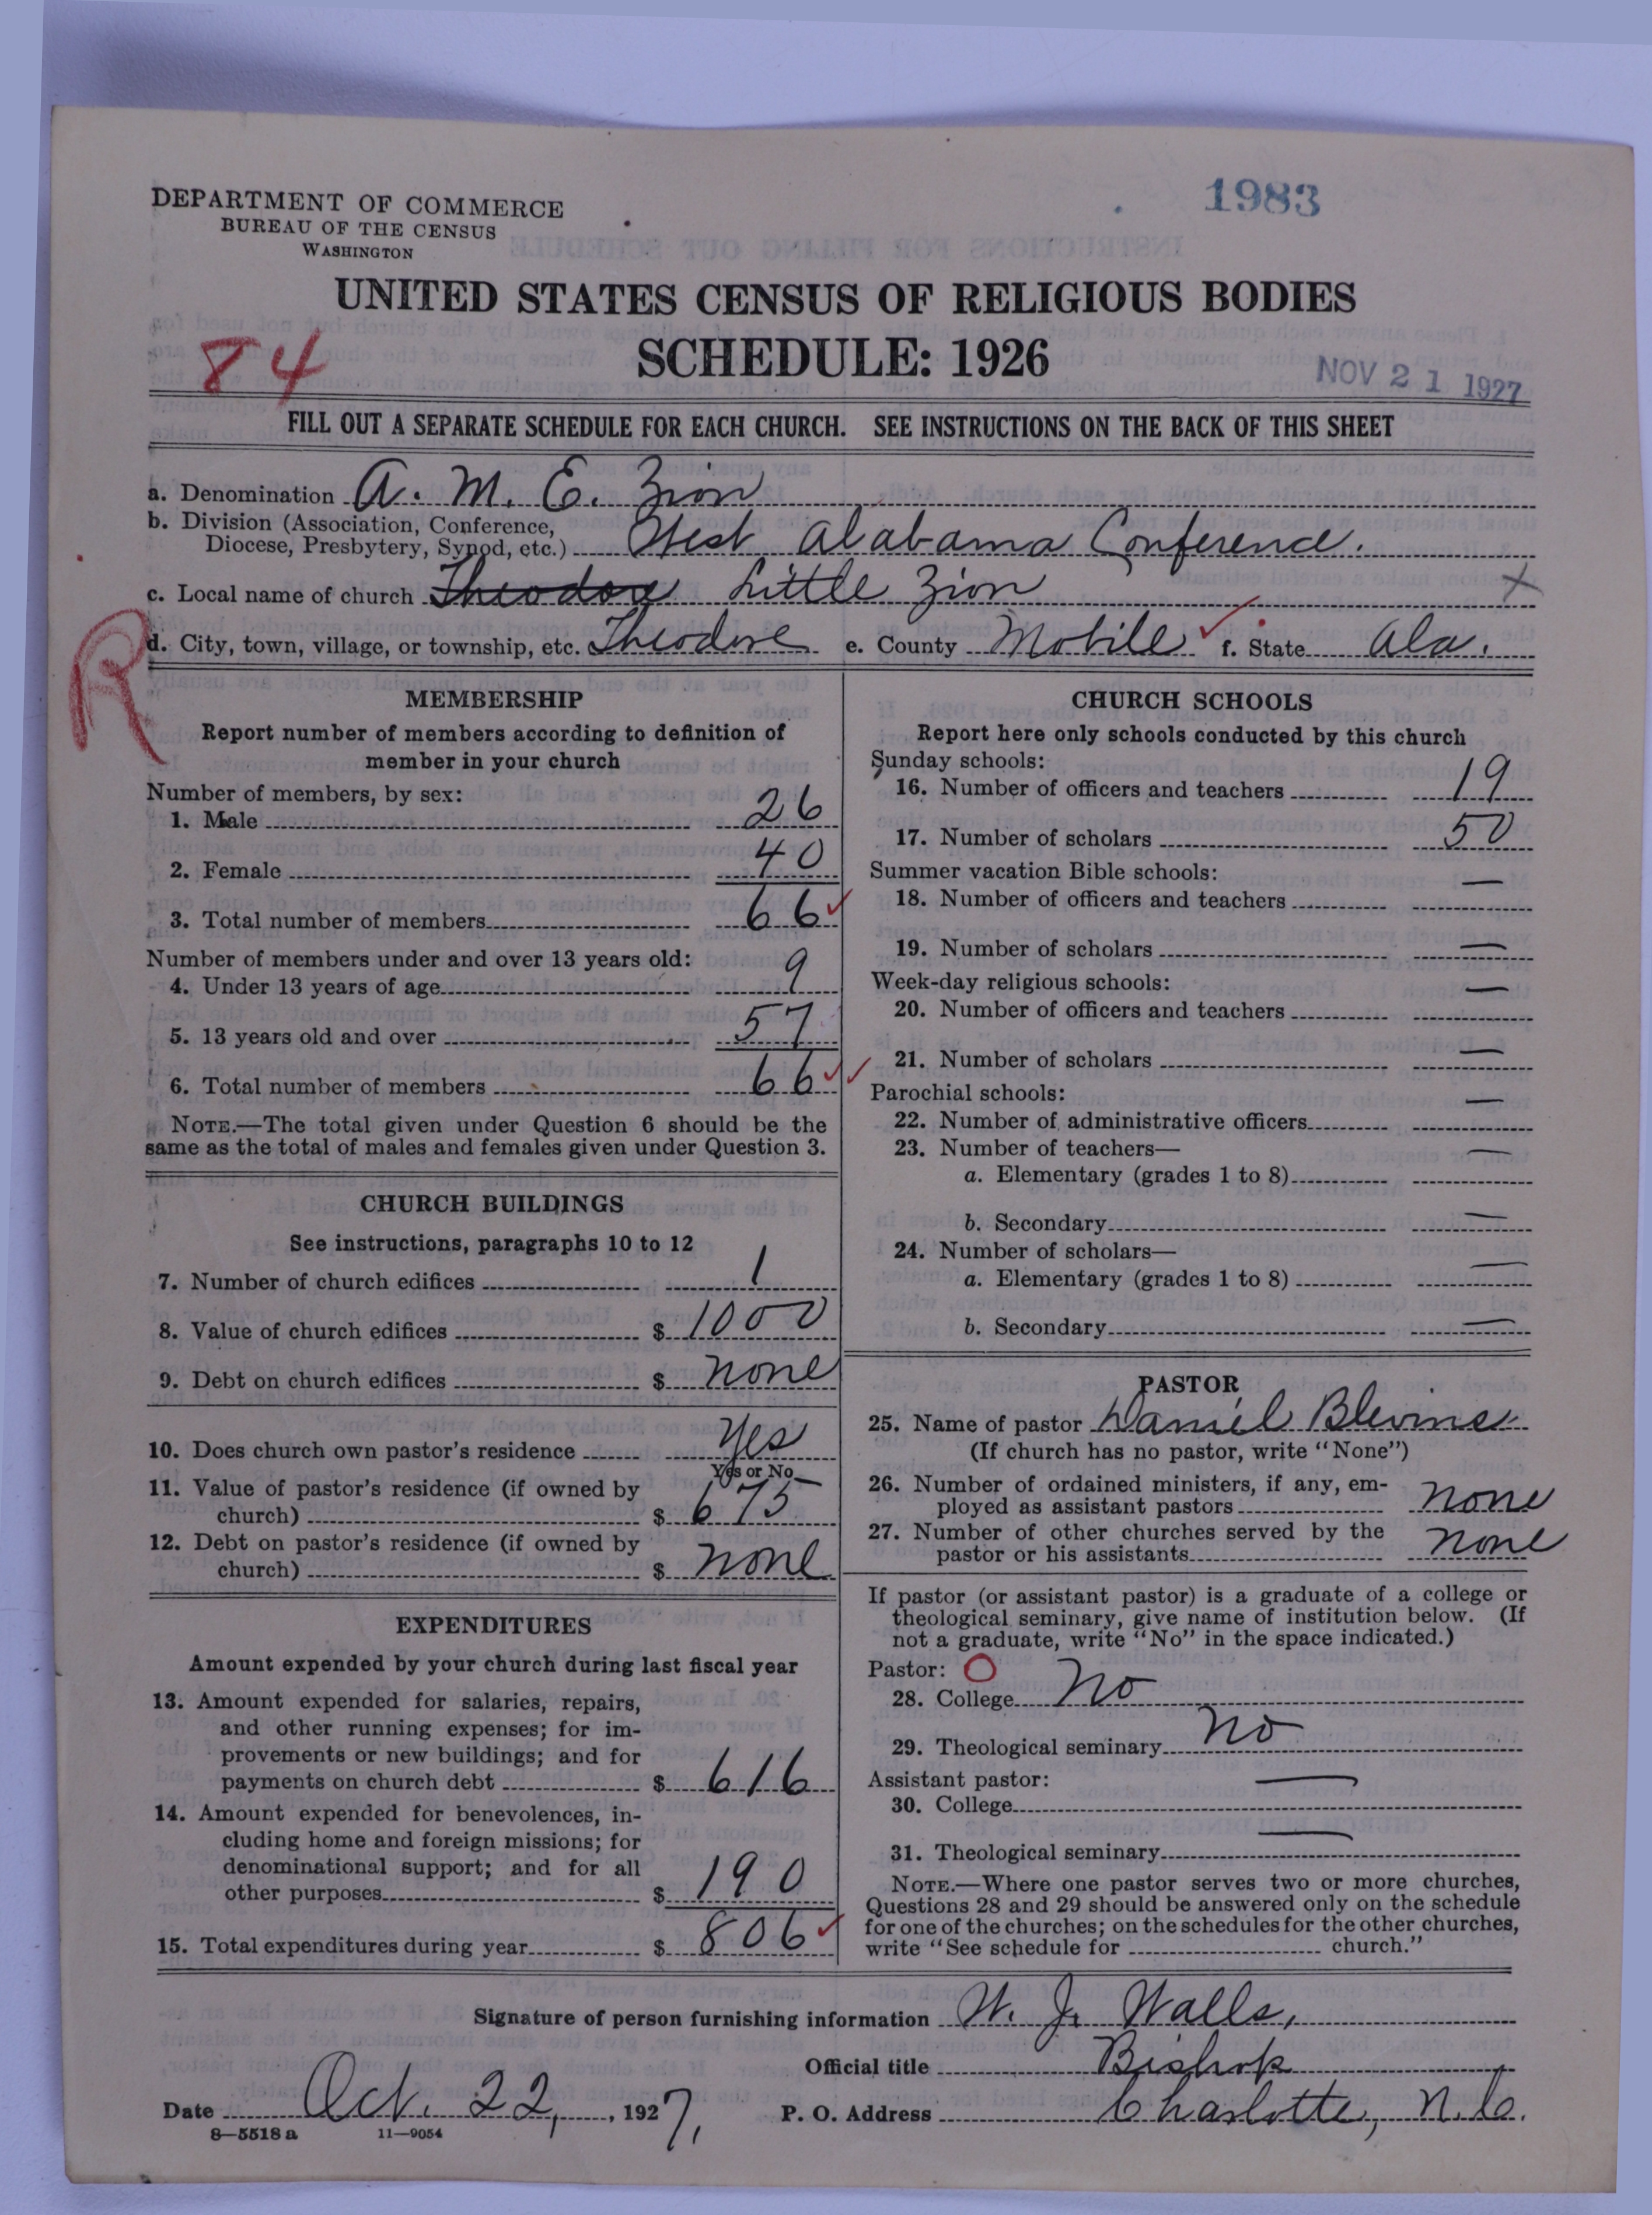 DEPARTMENT OF COMMERCE
BUREAU OF THE CENSUS
WASHINGTON
1983
UNITED STATES CENSUS OF RELIGIOUS BODIES
SCHEDULE: 1926
84
NOV 21 1927
FILL OUT A SEPARATE SCHEDULE FOR EACH CHURCH. SEE INSTRUCTIONS ON THE BACK OF THIS SHEET
a. Denomination A. M. E. Zion
b. Division (Association, Conference,
Diocese, Presbytery, Synod, etc.) West Alabama Conference.
c. Local name of church Theodore Little Zion X
R
d. City, town, village, or township, etc. Theodore e. County Mobile f. State Ala.
MEMBERSHIP
Report number of members according to definition of
member in your church
Number of members, by sex:
1. Male 26
2. Female 40
3. Total number of members 66
Number of members under and over 13 years old:
4. Under 13 years of age 9
5. 13 years old and over 57
6. Total number of members 66
NOTE.—The total given under Question 6 should be the
same as the total of males and females given under Question 3.
CHURCH BUILDINGS
See instructions, paragraphs 10 to 12
7. Number of church edifices 1
8. Value of church edifices $ 1000
9. Debt on church edifices $ none
10. Does church own pastor's residence Yes
Yes or No
11. Value of pastor's residence (if owned by
church) $ 675
12. Debt on pastor's residence (if owned by
church) $ none
EXPENDITURES
Amount expended by your church during last fiscal year
13. Amount expended for salaries, repairs,
and other running expenses; for im-
provements or new buildings; and for
payments on church debt $ 616
14. Amount expended for benevolences, in-
cluding home and foreign missions; for
denominational support; and for all
other purposes $ 190
15. Total expenditures during year $ 806
CHURCH SCHOOLS
Report here only schools conducted by this church
Sunday schools:
16. Number of officers and teachers 19
17. Number of scholars 50
Summer vacation Bible schools:
18. Number of officers and teachers —
19. Number of scholars —
Week-day religious schools:
20. Number of officers and teachers —
21. Number of scholars —
Parochial schools:
22. Number of administrative officers —
23. Number of teachers—
a. Elementary (grades 1 to 8) —
b. Secondary —
24. Number of scholars—
a. Elementary (grades 1 to 8) —
b. Secondary —
PASTOR
25. Name of pastor Daniel Blevins
(If church has no pastor, write "None")
26. Number of ordained ministers, if any, em-
ployed as assistant pastors none
27. Number of other churches served by the
pastor or his assistants none
If pastor (or assistant pastor) is a graduate of a college or
theological seminary, give name of institution below. (If
not a graduate, write "No" in the space indicated.)
Pastor: O
28. College No
29. Theological seminary No
Assistant pastor:
30. College —
31. Theological seminary —
NOTE.—Where one pastor serves two or more churches,
Questions 28 and 29 should be answered only on the schedule
for one of the churches; on the schedules for the other churches,
write "See schedule for church."
Signature of person furnishing information W. J. Walls,
Official title Bishop
Date Oct. 22, 1927, P. O. Address Charlotte, N.C.
8—5518a 11—9054